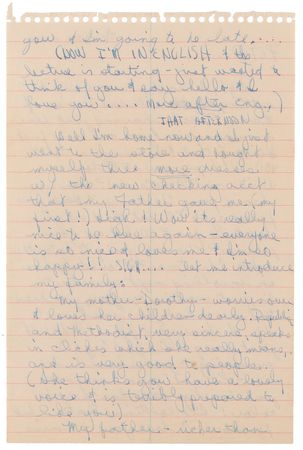 you & I'm going to be late....
(NOW I'M IN ENGLISH & the
lecture is starting - just wanted to
think of you & say hello & I
love you.... More after Eng.)
THAT AFTERNOON
Well I'm home now and I just
went to the store and bought
myself three more dresses
w/ the new checking acct
that my father gave me (my
first!) High! Wow its really
nice to be here again - everyone
is so nice & loves me & I'm so
happy!! let me introduce
my family:
My mother - Dorothy - worries over
& loves her children dearly. Republican
and Methodist, very sincere, speaks
in clichés which she really means,
and is very good to people.
(She thinks you have a lovely
voice & is terribly prepared to
like you)
My father - richer than